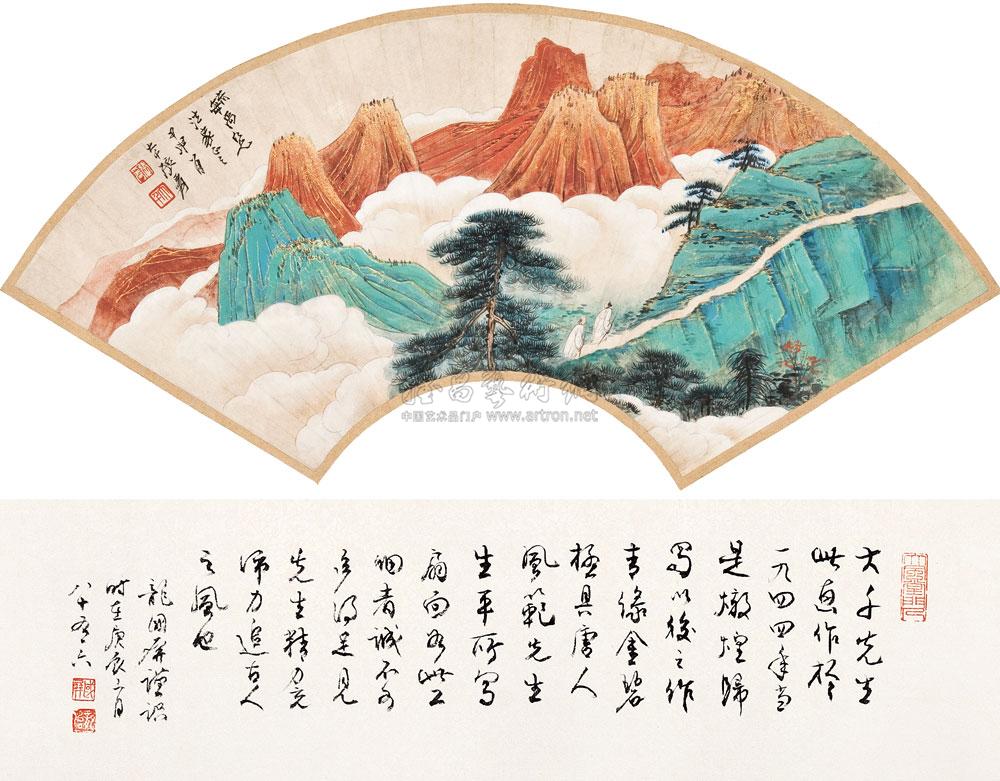 法家正之
大千張爰
雅昌藝術網
中国艺术品门户 www.artron.net
大千先生
此作於
一九四四年當
是燉煌歸
蜀以後之作
青綠金碧
極具唐人
風範先生
生平所寫
扇面如此工
細者誠不可
多得足見
先生精力充
沛力追古人
之風也
龍國屏謹識
時在庚辰二月
八十有六